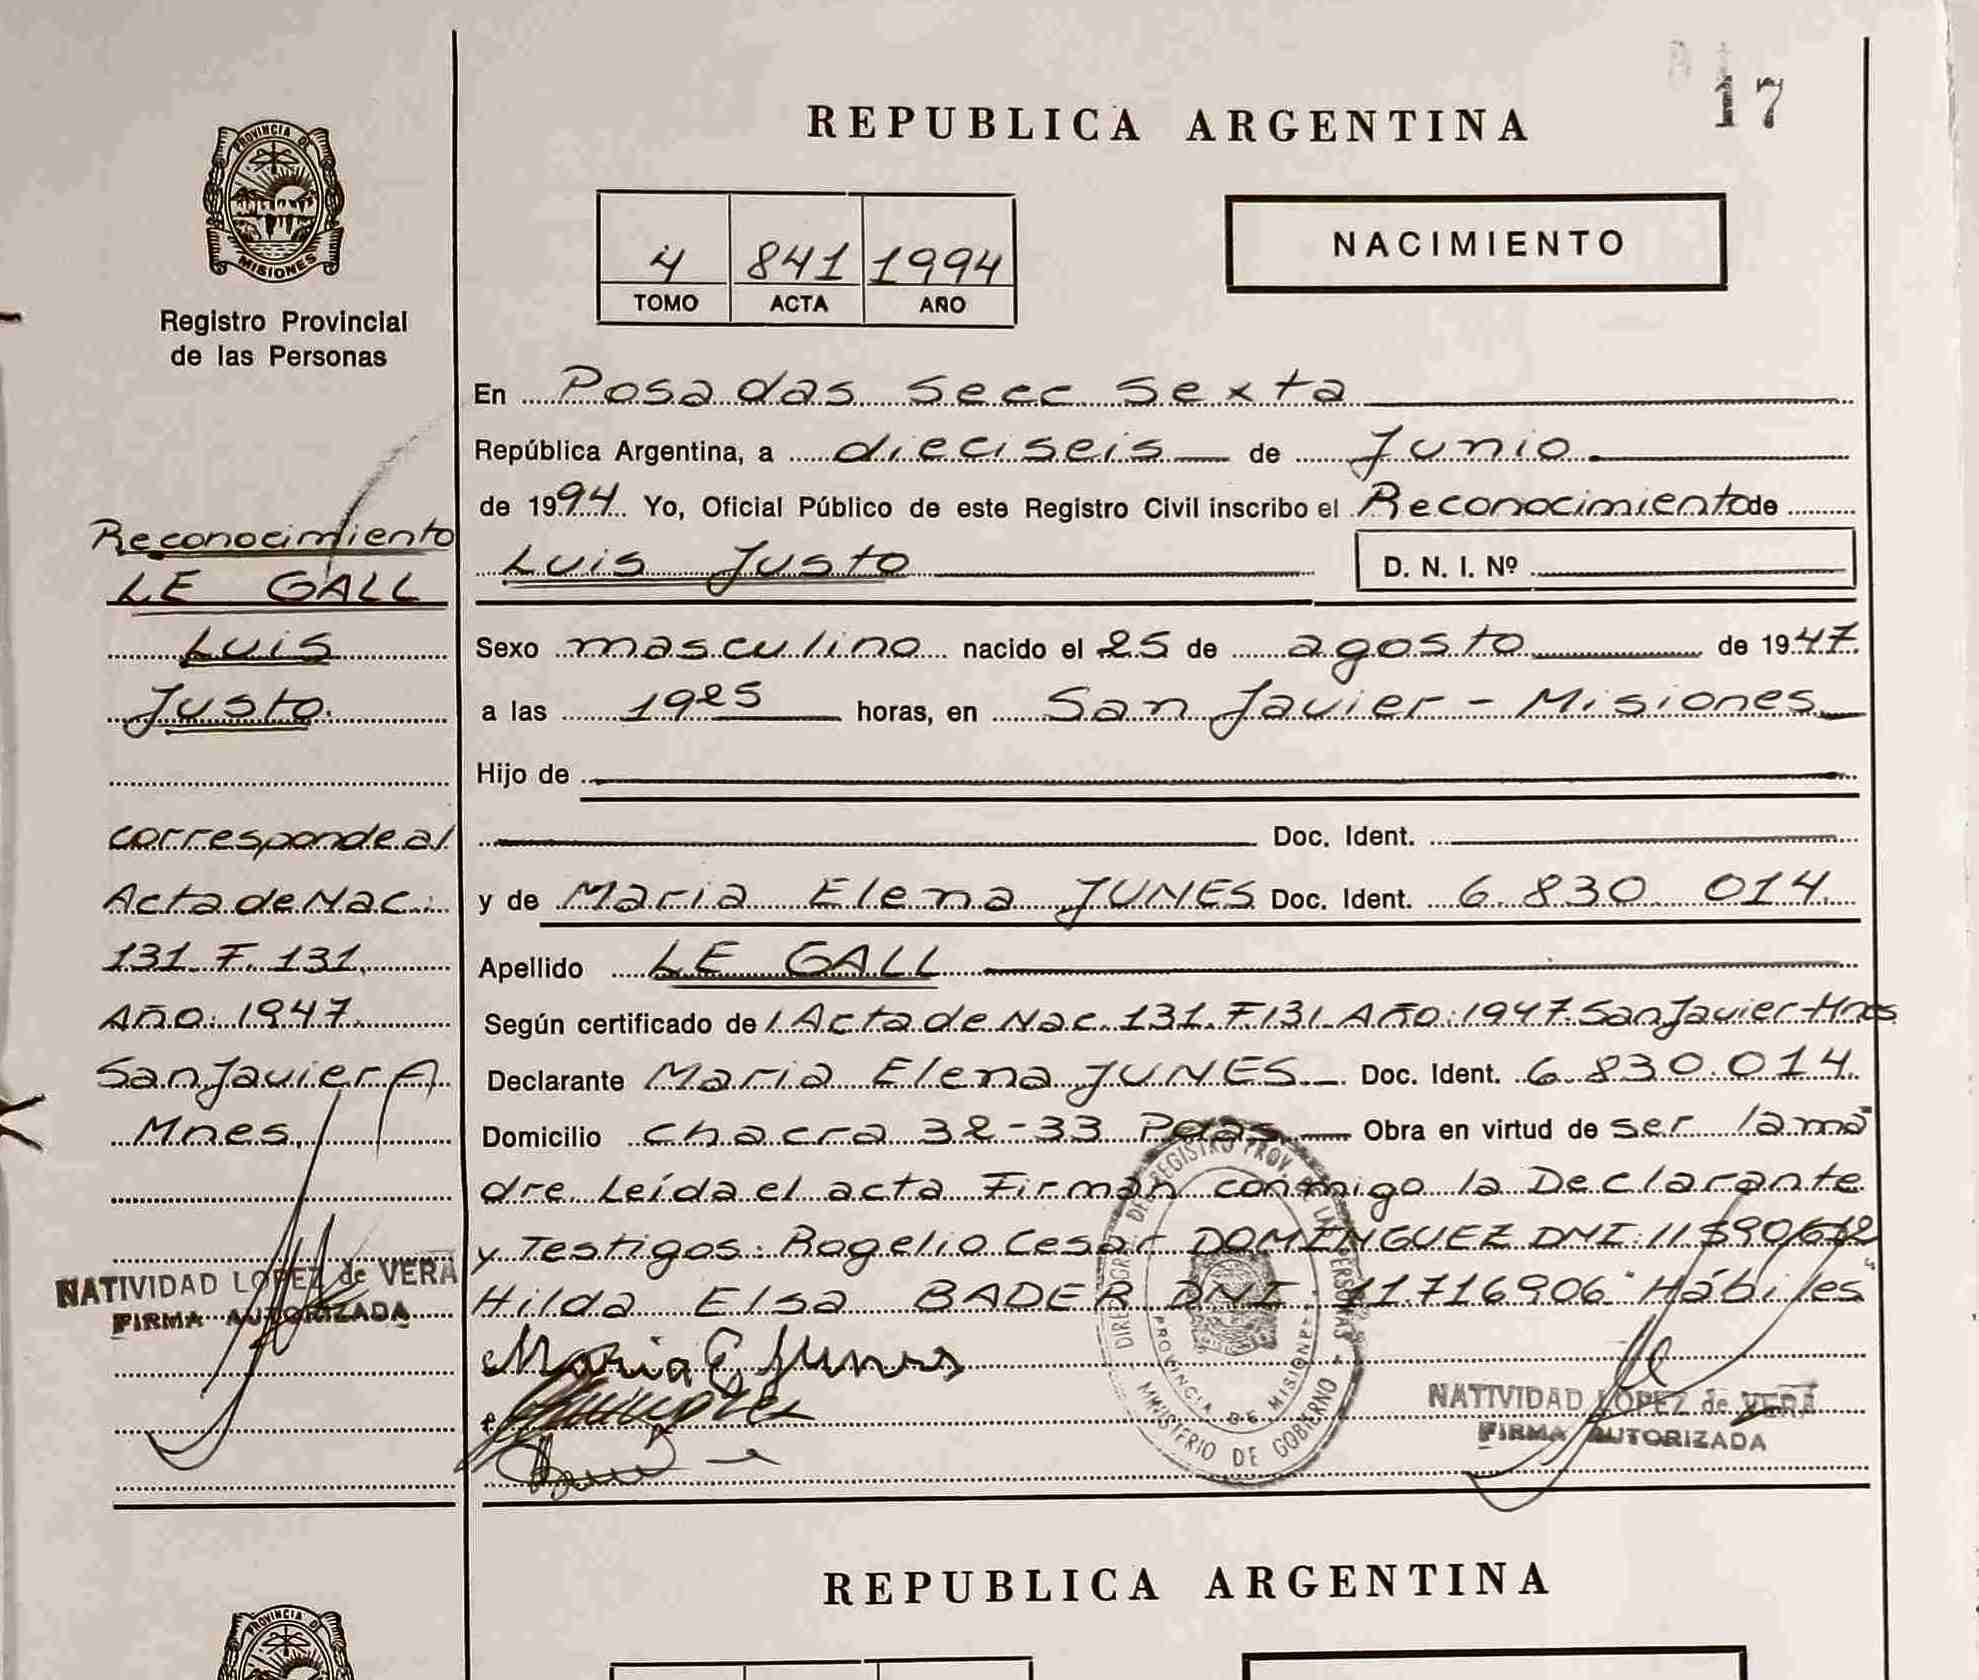 17
REPUBLICA ARGENTINA
PROVINCIA DE
MISIONES
Registro Provincial
de las Personas
4 841 1994
TOMO ACTA AÑO
NACIMIENTO
Reconocimiento
LE GALL
Luis
Justo.
corresponde al
Acta de Nac.:
131 F. 131.
Año: 1947.
San Javier
Mnes.
NATIVIDAD LOPEZ de VERA
FIRMA AUTORIZADA
En Posadas Secc Sexta
República Argentina, a dieciseis de Junio.
de 1994. Yo, Oficial Público de este Registro Civil inscribo el Reconocimiento de
Luis Justo D. N. I. Nº
Sexo masculino nacido el 25 de agosto de 1947.
a las 19 25 horas, en San Javier - Misiones
Hijo de
Doc. Ident.
y de Maria Elena JUNES Doc. Ident. 6.830.014.
Apellido LE GALL
Según certificado de / Acta de Nac. 131. F 131. Año: 1947. San Javier Mnes
Declarante Maria Elena JUNES. Doc. Ident. 6.830.014.
Domicilio chacra 32-33 Pdas. Obra en virtud de ser la ma
dre. Leída el acta Firman conmigo la Declarante
y Testigos: Rogelio Cesar DOMINGUEZ DNI: 11.590.612
Hilda Elsa BADER DNI 11.716.906 "Hábiles"
Maria E Junes
DIRECCION DE REGISTRO PROV. DE LAS PERSONAS
PROVINCIA DE MISIONES
MINISTERIO DE GOBIERNO
NATIVIDAD LOPEZ de VERA
FIRMA AUTORIZADA
REPUBLICA ARGENTINA
PROVINCIA DE